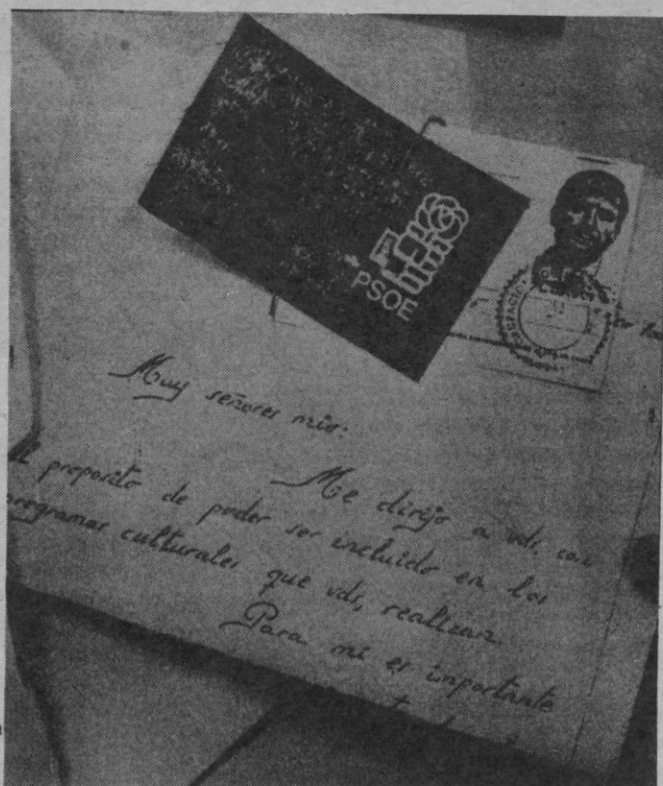 PSOE
Muy señores mios:
Me dirijo a vds, con
el proposito de poder ser incluido en los
programas culturales que vds, realizan.
Para mi es importante